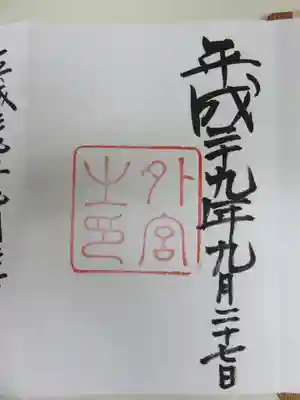 平成二十九年九月二十七日
外宮之印